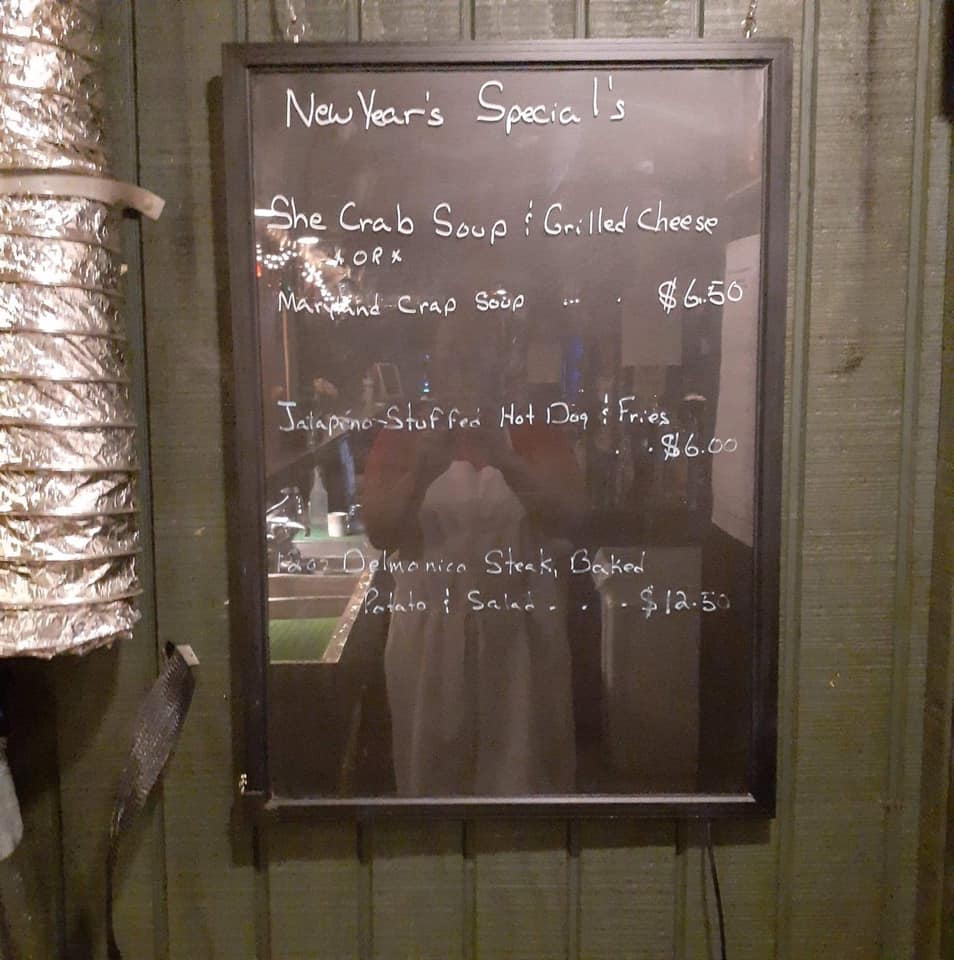 New Year's Special's
She Crab Soup & Grilled Cheese
* OR *
Maryland Crap Soup ... . $6.50
Jalapino-Stuffed Hot Dog & Fries
. . $6.00
12oz Delmonico Steak, Baked
Potato & Salad . . . . $12.50